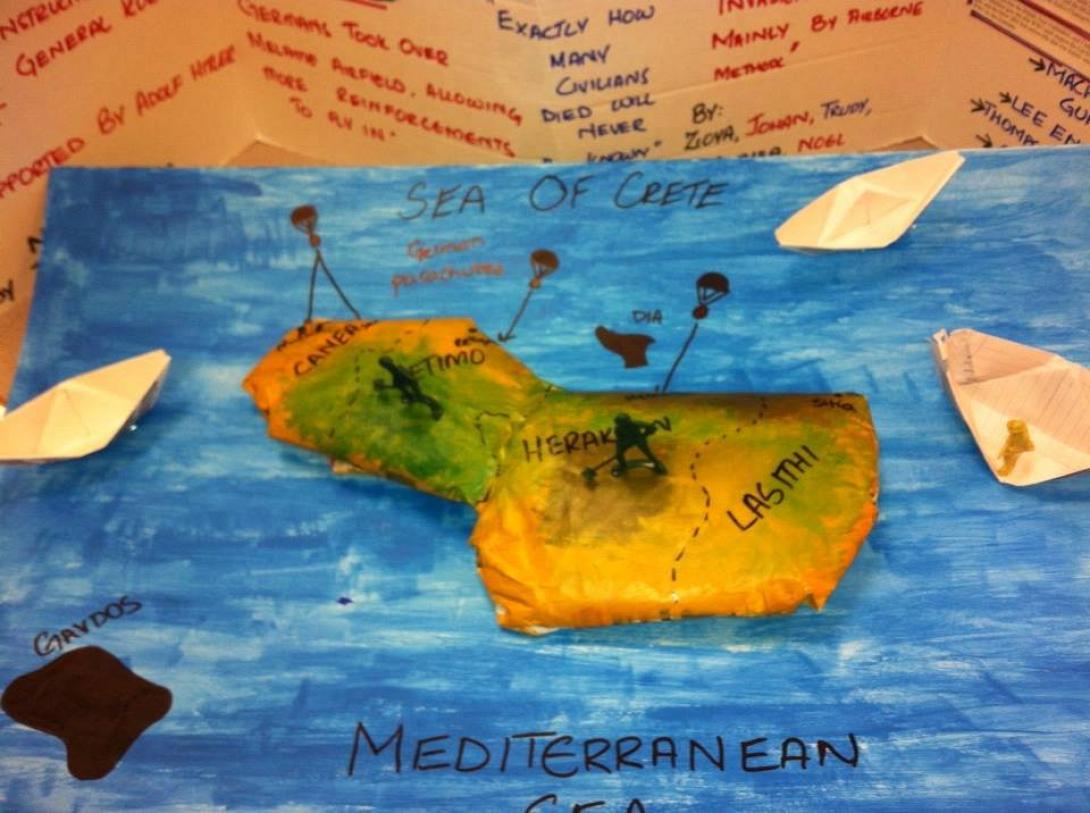 GENERAL
PPORTED BY ADOLF HITLER
GERMANS TOOK OVER
MELAME AIRFIELD, ALLOWING
MORE REINFORCEMENTS
TO FLY IN"
EXACTLY HOW
MANY
CIVILIANS
DIED WILL
NEVER
KNOWN"
MAINLY BY AIRBORNE
METHOD"
BY:
ZIOVA, JOHAN, TRUDY,
NOEL
→LEE EN
SEA OF CRETE
German
parachutes
DIA
CANEA
RETIMO
HERAKLION
LASITHI
GAVDOS
MEDITERRANEAN
SEA